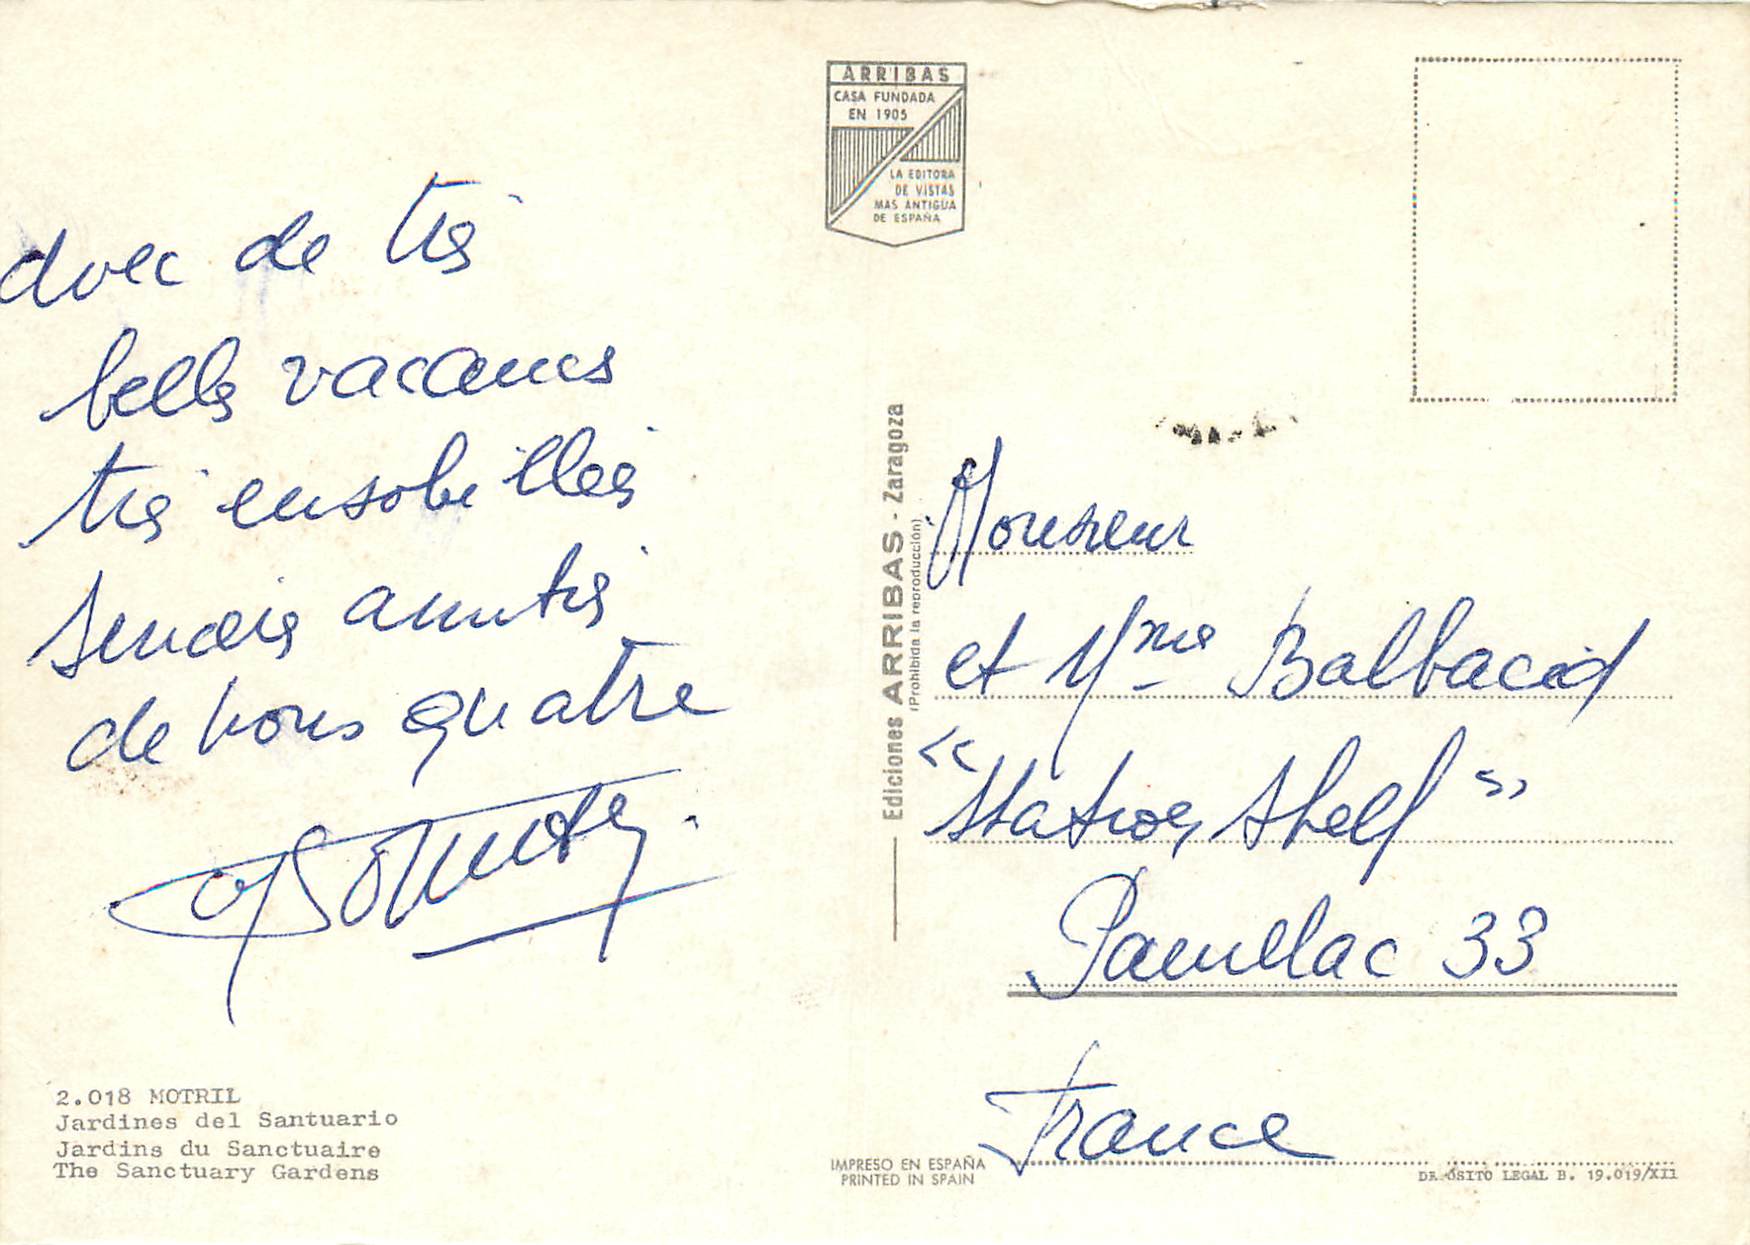 avec de très
belles vacances
très ensoleillées
sincères amitiés
de nous quatre
2.018 MOTRIL
Jardines del Santuario
Jardins du Sanctuaire
The Sanctuary Gardens
ARRIBAS
CASA FUNDADA
EN 1905
LA EDITORA
DE VISTAS
MAS ANTIGUA
DE ESPAÑA
Ediciones ARRIBAS - Zaragoza
(Prohibida la reproducción)
Monsieur
et Mme Balbacid
"Station Shell"
Pauillac 33
France
IMPRESO EN ESPAÑA
PRINTED IN SPAIN
DEPÓSITO LEGAL B. 19.019/XII